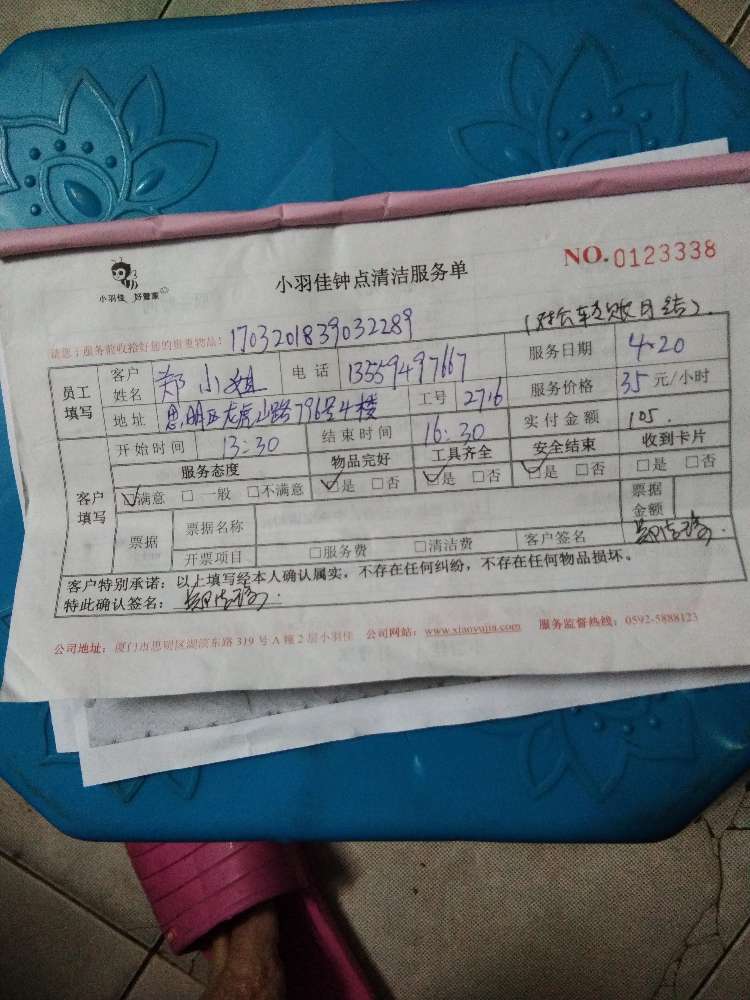 小羽佳 好管家
小羽佳钟点清洁服务单
NO.0123338
请您于服务前收拾好您的贵重物品!
1703201839032289
(对公转账月结).
员工填写
客户姓名 郑小姐 电话 13559497667 服务日期 4.20
地址 思明区龙虎山路796号4楼 工号 2716 服务价格 35元/小时
客户填写
开始时间 13:30 结束时间 16:30 实付金额 105.
服务态度 物品完好 工具齐全 安全结束 收到卡片
☑满意 □一般 □不满意 ☑是 □否 ☑是 □否 ☑是 □否 □是 □否
票据 票据名称 票据金额
开票项目 □服务费 □清洁费 客户签名
客户特别承诺:以上填写经本人确认属实,不存在任何纠纷,不存在任何物品损坏。
特此确认签名:
公司地址:厦门市思明区湖滨东路319号A幢2层小羽佳 公司网站:www.xiaoyujia.com 服务监督热线:0592-5888123